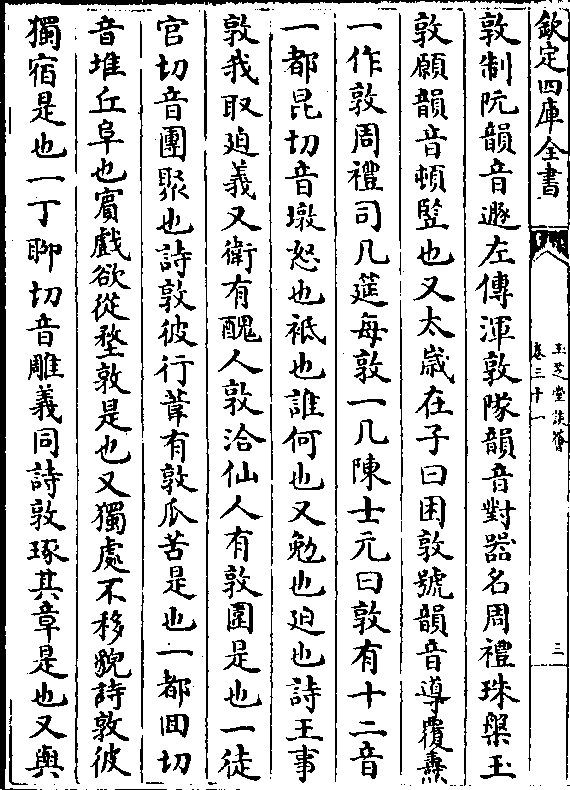 欽定四庫全書
玉芝堂談薈
卷三十一
三
敦制阮韻音遯左傳渾敦隊韻音對器名周禮珠槃玉
敦願韻音頓竪也又太嵗在子曰困敦號韻音導覆燾
一作敦周禮司几筵每敦一几陳士元曰敦有十二音
一都昆切音墩怒也袛也誰何也又勉也廹也詩王事
敦我取廹義又衛有醜人敦洽仙人有敦圄是也一徒
官切音團聚也詩敦彼行葦有敦瓜苦是也一都回切
音堆丘阜也賓戲欲從堥敦是也又獨處不移貌詩敦彼
獨宿是也一丁聊切音雕義同詩敦琢其章是也又與